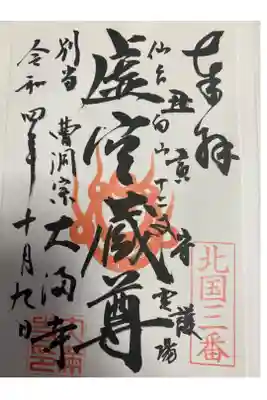 奉拝
北国三番
丑寅守護
仙台向山十二支霊場
虚空蔵尊
別当 曹洞宗 大満寺
令和四年十月九日